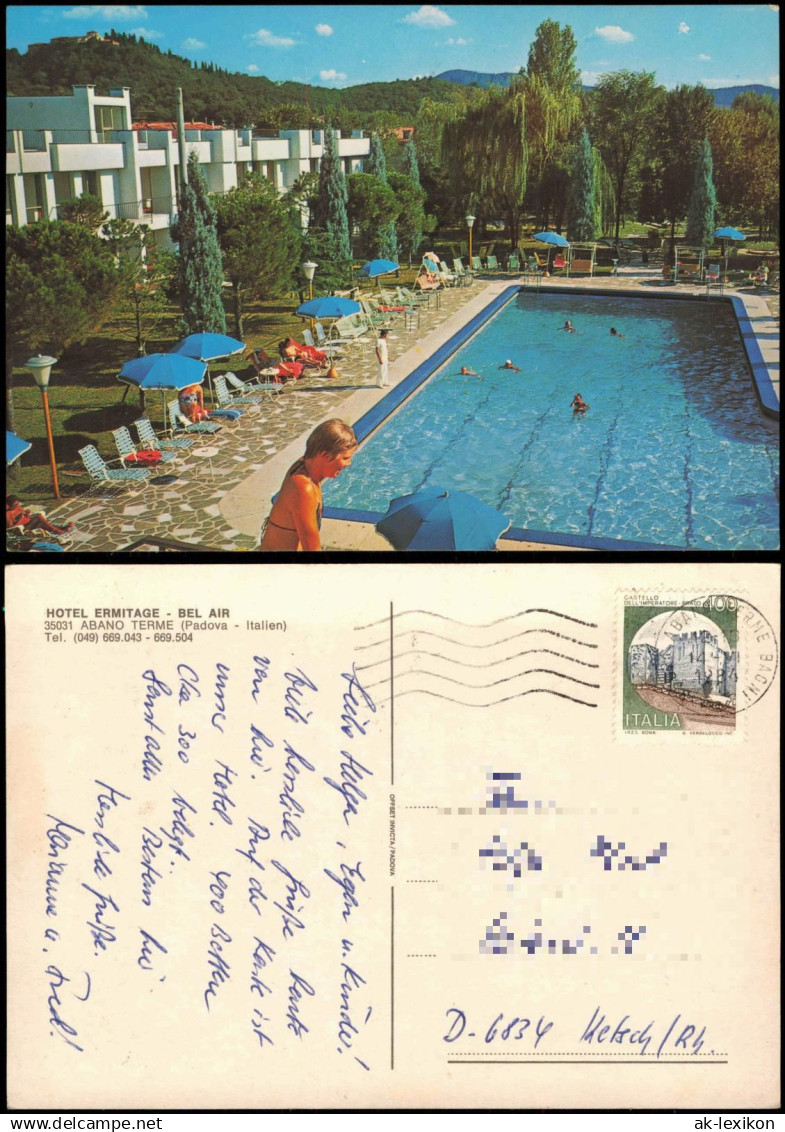 HOTEL ERMITAGE - BEL AIR
35031 ABANO TERME (Padova - Italien)
Tel. (049) 669.043 - 669.504
Liebe Helga, Egon u. Kinder!
herzliche Grüße
hier. Auf der Karte ist
unser Hotel. 400 Betten
Cka 300 belegt.
Sonst alles Bestens hier
Herzliche Grüße.
Marianne u. Fred!
OFFSET INVICTA/PADOVA
CASTELLO
DELL'IMPERATORE - PRATO 400
ITALIA
I.P.Z.S. ROMA
ABANO TERME BAGNI
D-6834 Ketsch/Rh.
delcampe.net
ak-lexikon